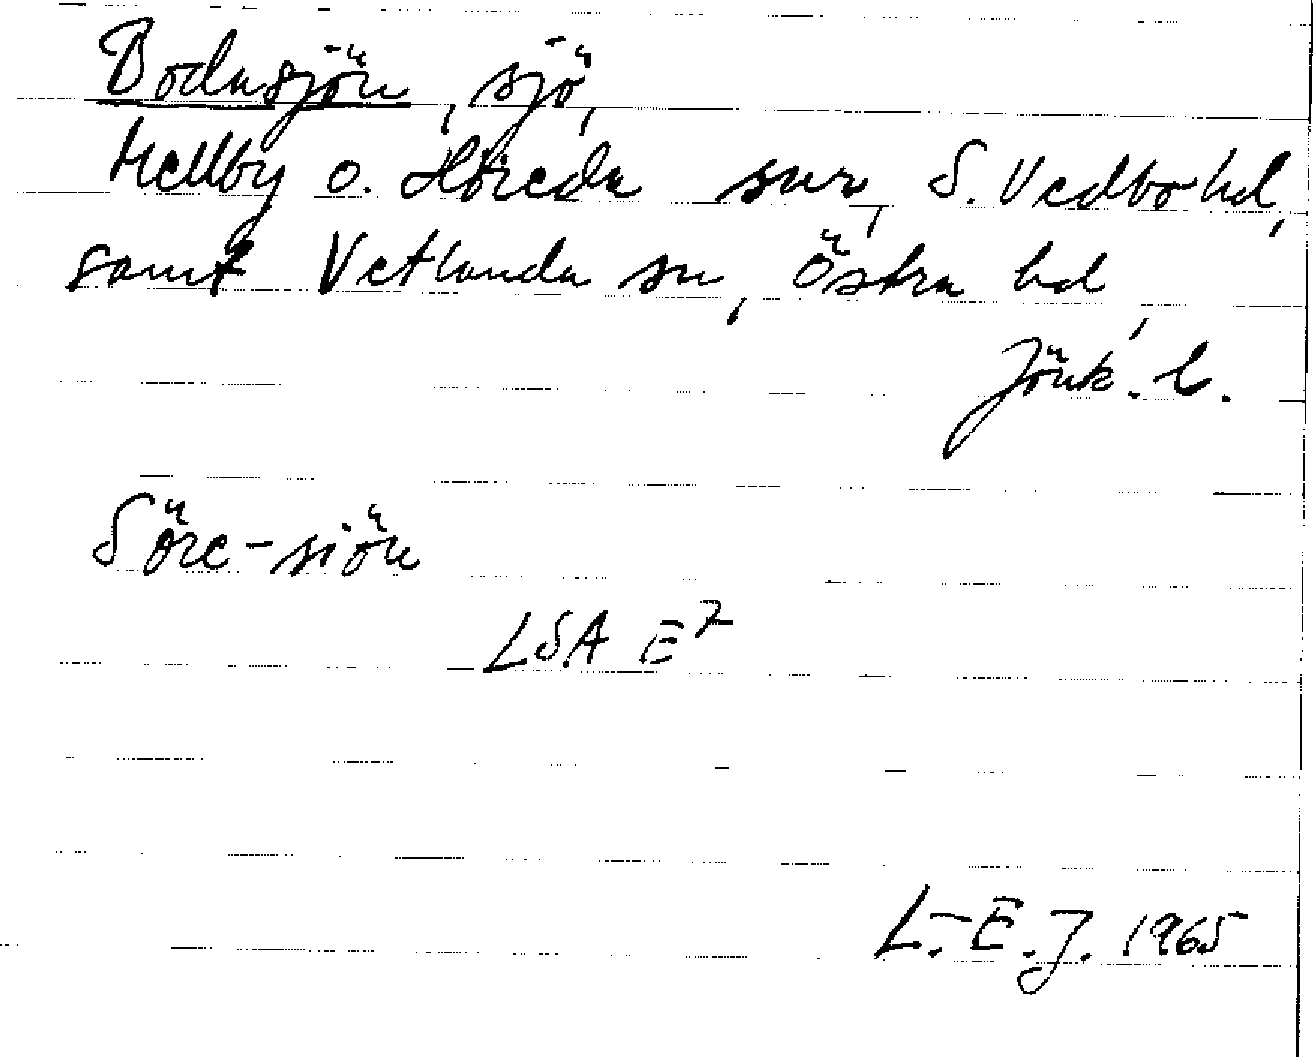 Bodasjön, sjö,
Mellby o. Höreda snr, S. Vedbo hd,
samt Vetlanda sn, Östra hd,
Jönk. l.
Söre-siön
LSA E7
L.-E.J. 1965